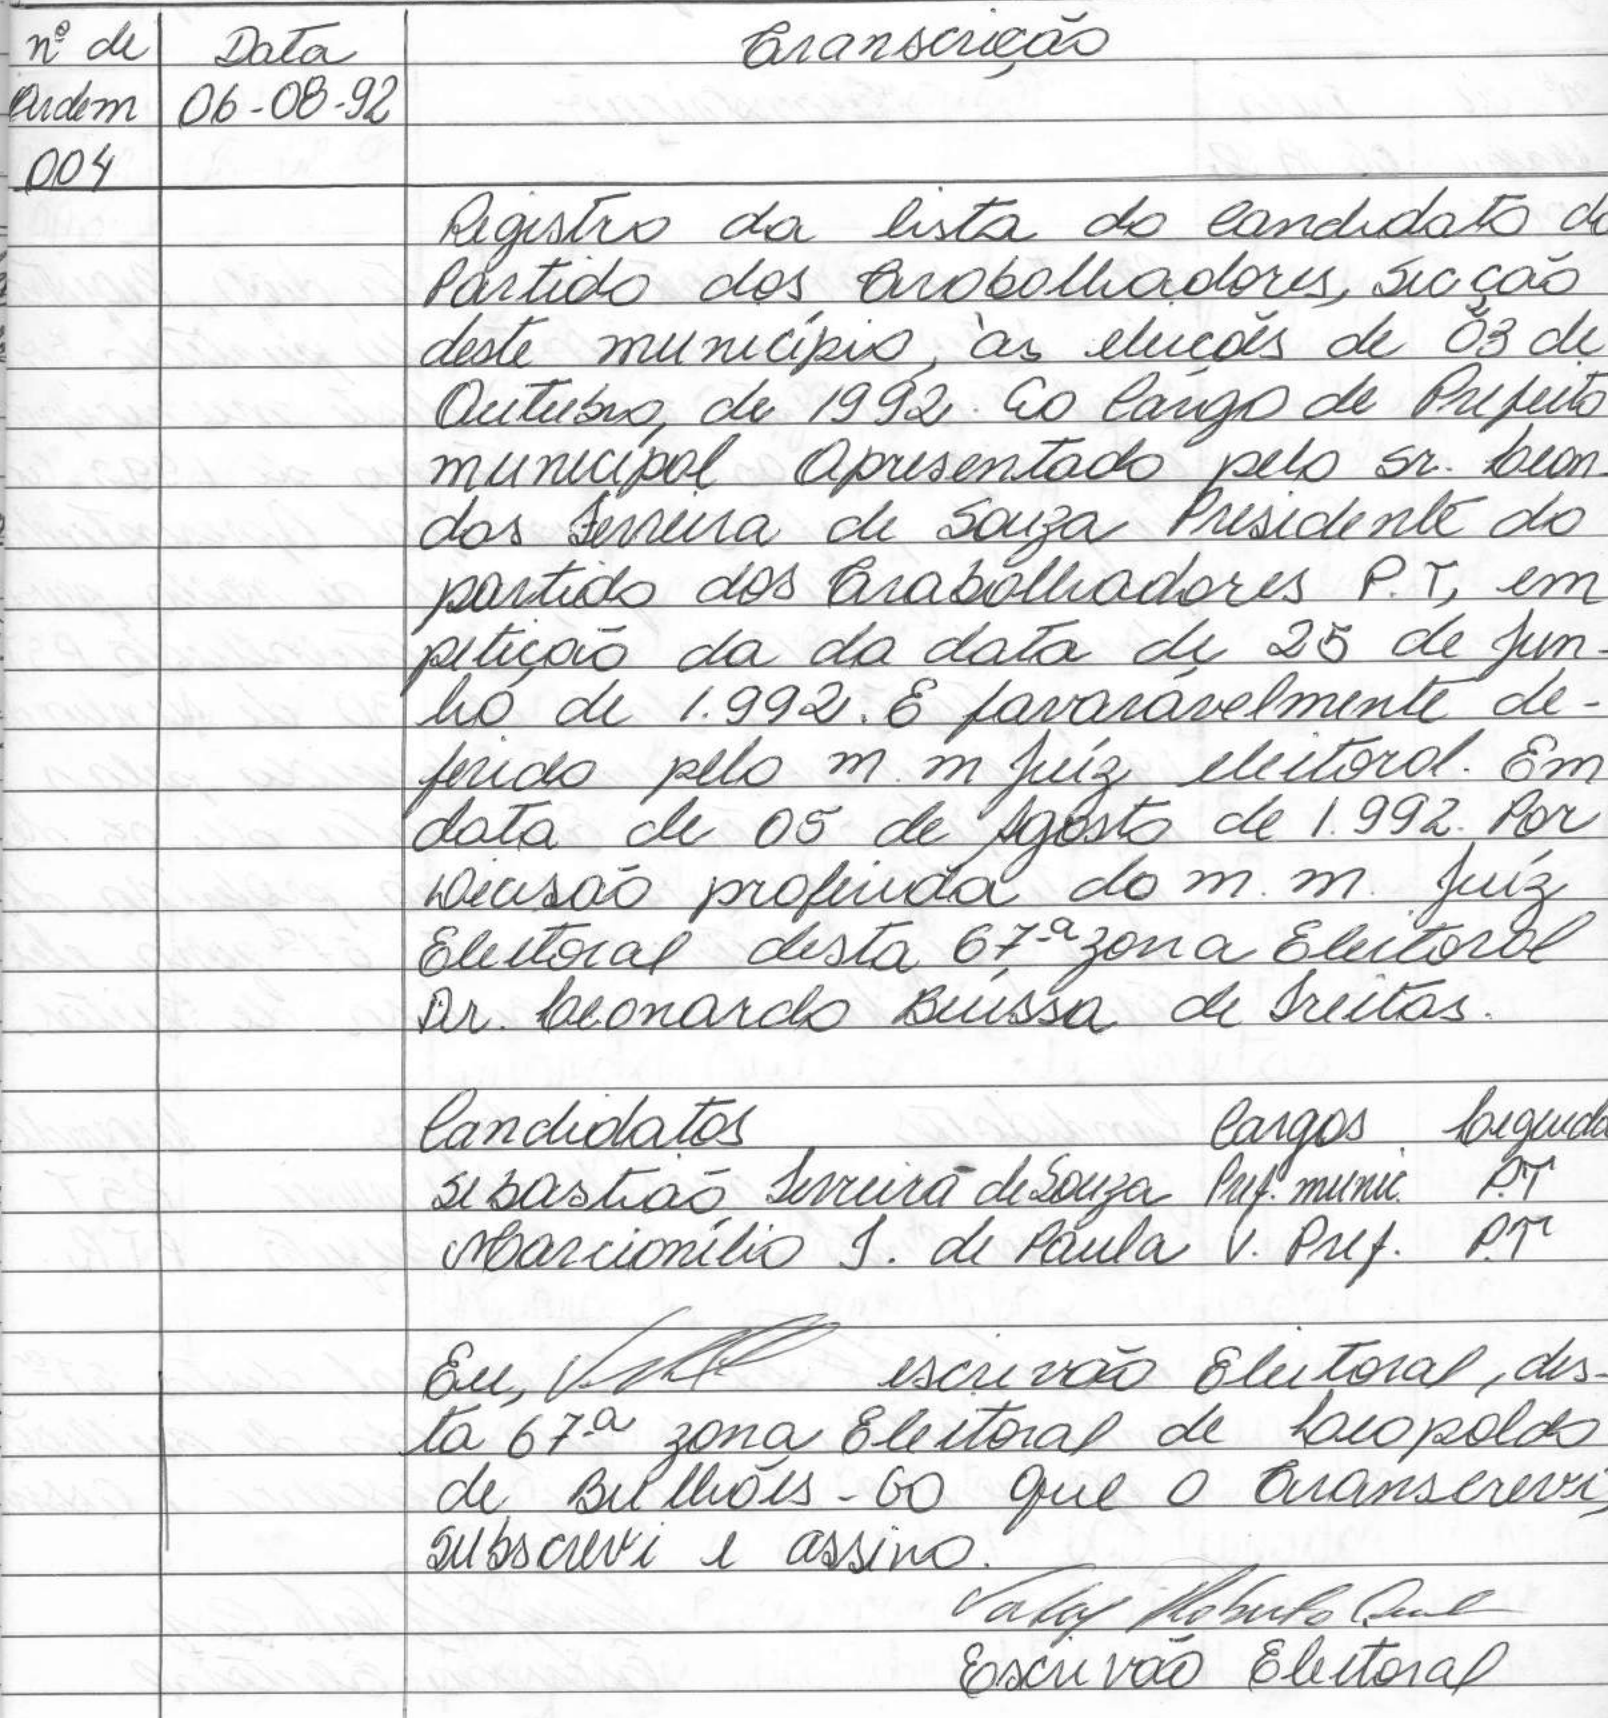 nº de Data Transcrição
Ordem 06-08-92
004
Registro da lista do Candidato do
Partido dos Trabalhadores, Secção
deste município, às eleições de 03 de
Outubro, de 1992. Ao Cargo de Prefeito
municipal Apresentado pelo Sr. Leon-
das Ferreira de Souza Presidente do
partido dos Trabalhadores P.T, em
petição da da data de 25 de Jun-
ho de 1.992. E favaravelmente de-
ferido pelo m. m Juíz eleitoral. Em
data de 05 de Agosto de 1.992. Por
Decisão proferida do m. m. Juíz
Eleitoral desta 67ª zona Eleitoral
Dr. Leonardo Buissa de Freitas.
Candidatos Cargos Legenda
Sebastião Ferreira de Souza Pref. munic. P.T
Marcionílio J. de Paula V. Pref. P.T
Eu, escrivão Eleitoral, des-
ta 67ª zona Eleitoral de Leopoldo
de Bulhões-GO que o transcrevi,
subscrevi e assino.
Roberto
Escrivão Eleitoral